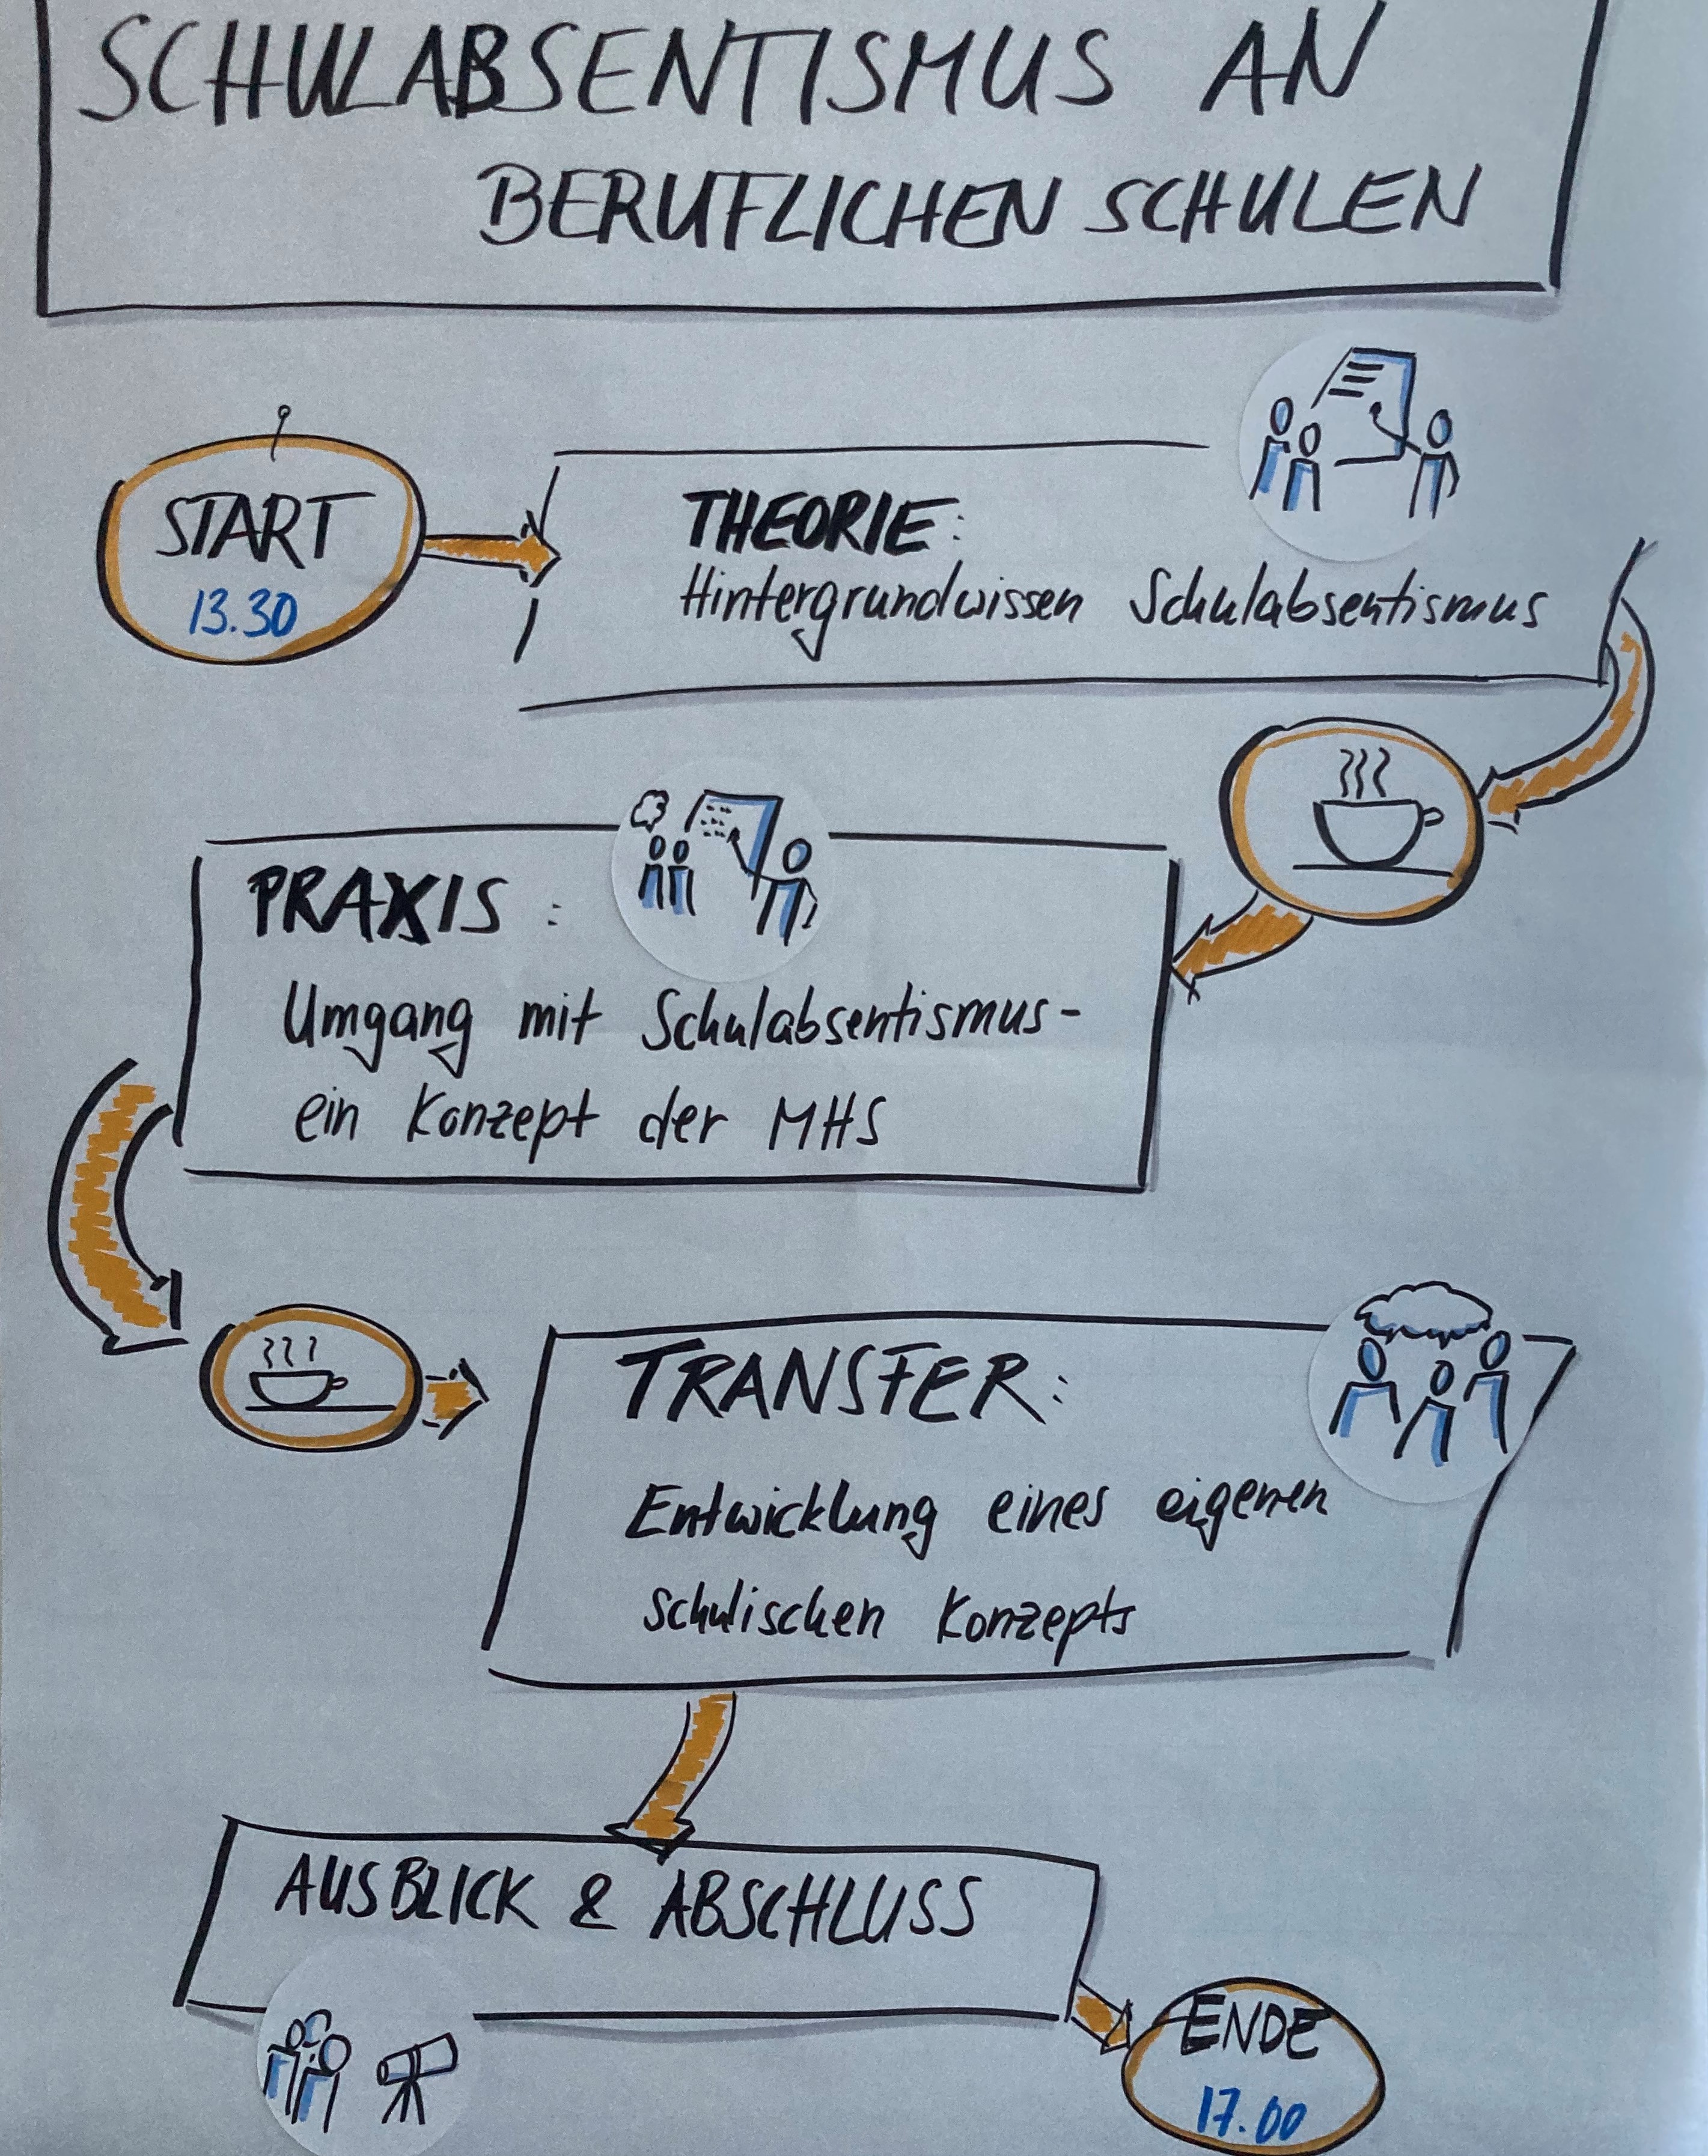 SCHULABSENTISMUS AN
BERUFLICHEN SCHULEN
START
13.30
THEORIE:
Hintergrundwissen Schulabsentismus
PRAXIS :
Umgang mit Schulabsentismus-
ein Konzept der MHS
TRANSFER:
Entwicklung eines eigenen
schulischen Konzepts
AUSBLICK & ABSCHLUSS
ENDE
17.00